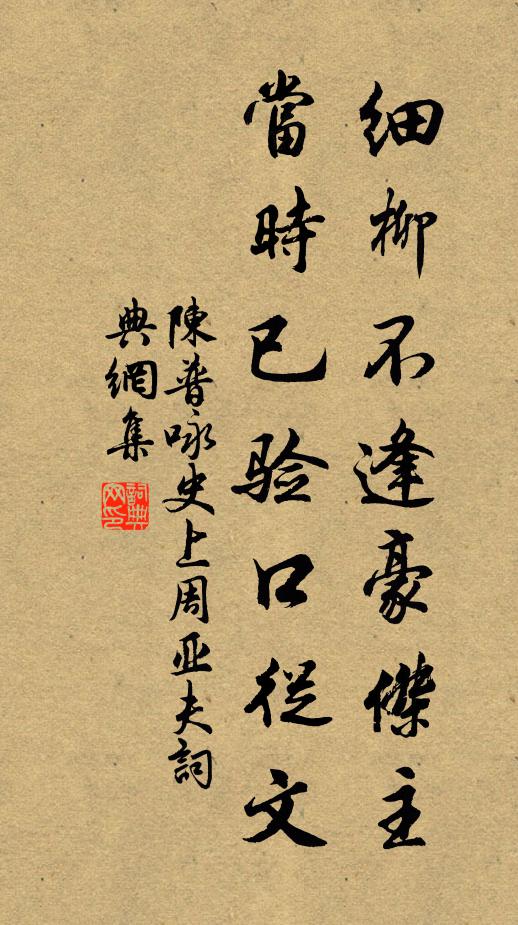 細柳不逢豪傑主
當時已验口從文
陳普咏史上周亚夫詞
典網集
詞典
网印